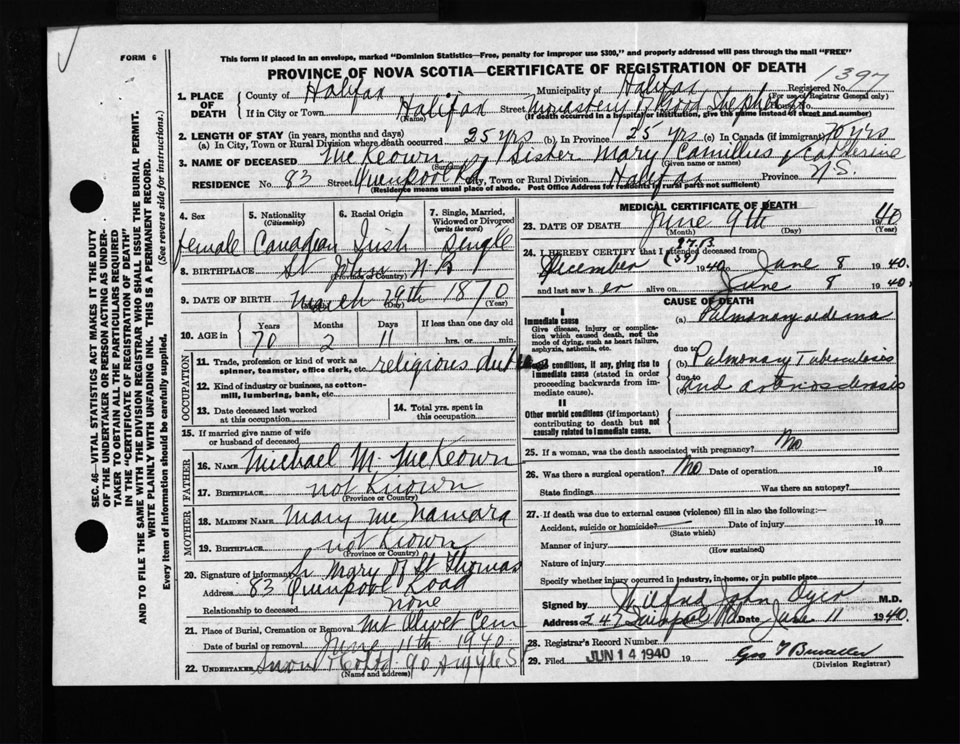 FORM 6
This form if placed in an envelope, marked "Dominion Statistics—Free, penalty for improper use $300," and properly addressed will pass through the mail "FREE"
PROVINCE OF NOVA SCOTIA—CERTIFICATE OF REGISTRATION OF DEATH
1397
1. PLACE OF DEATH
County of Halifax Municipality of Halifax Registered No.
(For use of Registrar General only)
If in City or Town Halifax Street Monastery of Good Shepherd House No.
(Name) (If death occurred in a hospital or institution, give the name instead of street and number)
2. LENGTH OF STAY (in years, months and days)
(a) In City, Town or Rural Division where death occurred 25 yrs (b) In Province 25 yrs (c) In Canada (if immigrant) 70 yrs
3. NAME OF DECEASED McKeown Sister Mary Camillus Catherine
(Surname) (Given name or names)
RESIDENCE No. 83 Street Quinpool Rd City, Town or Rural Division Halifax Province N.S.
(Residence means usual place of abode. Post Office Address for residents in rural parts not sufficient)
4. Sex female
5. Nationality (Citizenship) Canadian
6. Racial Origin Irish
7. Single, Married, Widowed or Divorced (write the word) Single
8. BIRTHPLACE St John N B
(Province or Country)
9. DATE OF BIRTH March 29th 1870
(Month) (Day) (Year)
10. AGE in Years 70 Months 2 Days 11 If less than one day old hrs. or min.
OCCUPATION
11. Trade, profession or kind of work as spinner, teamster, office clerk, etc. religious duties
12. Kind of industry or business, as cotton-mill, lumbering, bank, etc.
13. Date deceased last worked at this occupation
14. Total yrs. spent in this occupation
15. If married give name of wife or husband of deceased
FATHER
16. NAME Michael M. McKeown
17. BIRTHPLACE not Known
(Province or Country)
MOTHER
18. MAIDEN NAME Mary McNamara
19. BIRTHPLACE not Known
(Province or Country)
20. Signature of informant Sr Mary of St Thomas
Address 83 Quinpool Road
Relationship to deceased none
21. Place of Burial, Cremation or Removal Mt Olivet Cem
Date of burial or removal June 11th 1940
22. Undertaker Snow & Co Ltd 90 Argyle St
(Name and address)
MEDICAL CERTIFICATE OF DEATH
23. DATE OF DEATH June 9th 1940
(Month) (Day) (Year)
24. I HEREBY CERTIFY that I attended deceased from:
27.13
(39)
December 1940 to June 8 1940.
and last saw her alive on June 8 1940.
CAUSE OF DEATH
I
Immediate cause
Give disease, injury or complication which caused death, not the mode of dying, such as heart failure, asphyxia, asthenia, etc.
(a) Pulmonary oedema
due to
Morbid conditions, if any, giving rise to immediate cause (stated in order proceeding backwards from immediate cause).
(b) Pulmonary Tuberculosis
due to
and arteriosclerosis
(c)
II
Other morbid conditions (if important) contributing to death but not causally related to immediate cause.
25. If a woman, was the death associated with pregnancy? No
26. Was there a surgical operation? No Date of operation 19
State findings Was there an autopsy?
27. If death was due to external causes (violence) fill in also the following:—
Accident, suicide or homicide? Date of injury 19
(State which)
Manner of injury
(How sustained)
Nature of injury
Specify whether injury occurred in industry, in home, or in public place
Signed by Wilfred John Dyer M.D.
Address 247 Quinpool Rd. Date June 11 1940.
28. Registrar's Record Number
29. Filed JUN 14 1940 19
(Division Registrar)
SEC. 46—VITAL STATISTICS ACT MAKES IT THE DUTY OF THE UNDERTAKER OR PERSON ACTING AS UNDERTAKER TO OBTAIN ALL THE PARTICULARS REQUIRED IN THE "CERTIFICATE OF REGISTRATION OF DEATH" AND TO FILE THE SAME WITH THE DIVISION REGISTRAR WHO SHALL ISSUE THE BURIAL PERMIT.
WRITE PLAINLY WITH UNFADING INK. THIS IS A PERMANENT RECORD.
Every item of information should be carefully supplied. (See reverse side for instructions.)